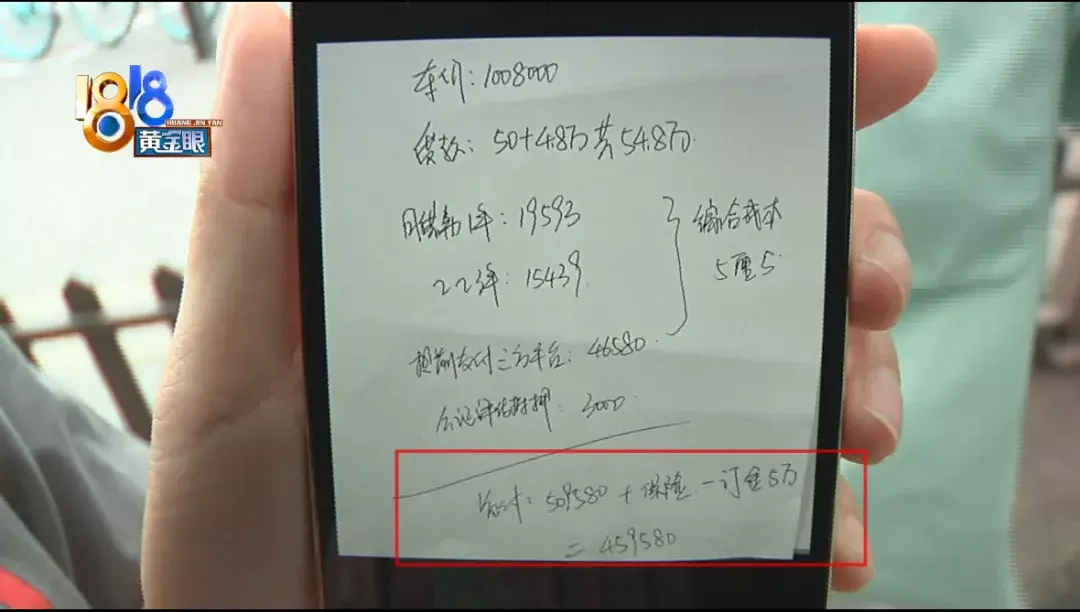 1818
HUANG JIN YAN
黄金眼
车价：1008000
贷款：50+4.8万共54.8万
月供第1年：19593
2-3年：15439
综合成本
5厘5
提前支付三方平台：46580
公证评估抵押：3000
总计：509580+保险-订金5万
=459580